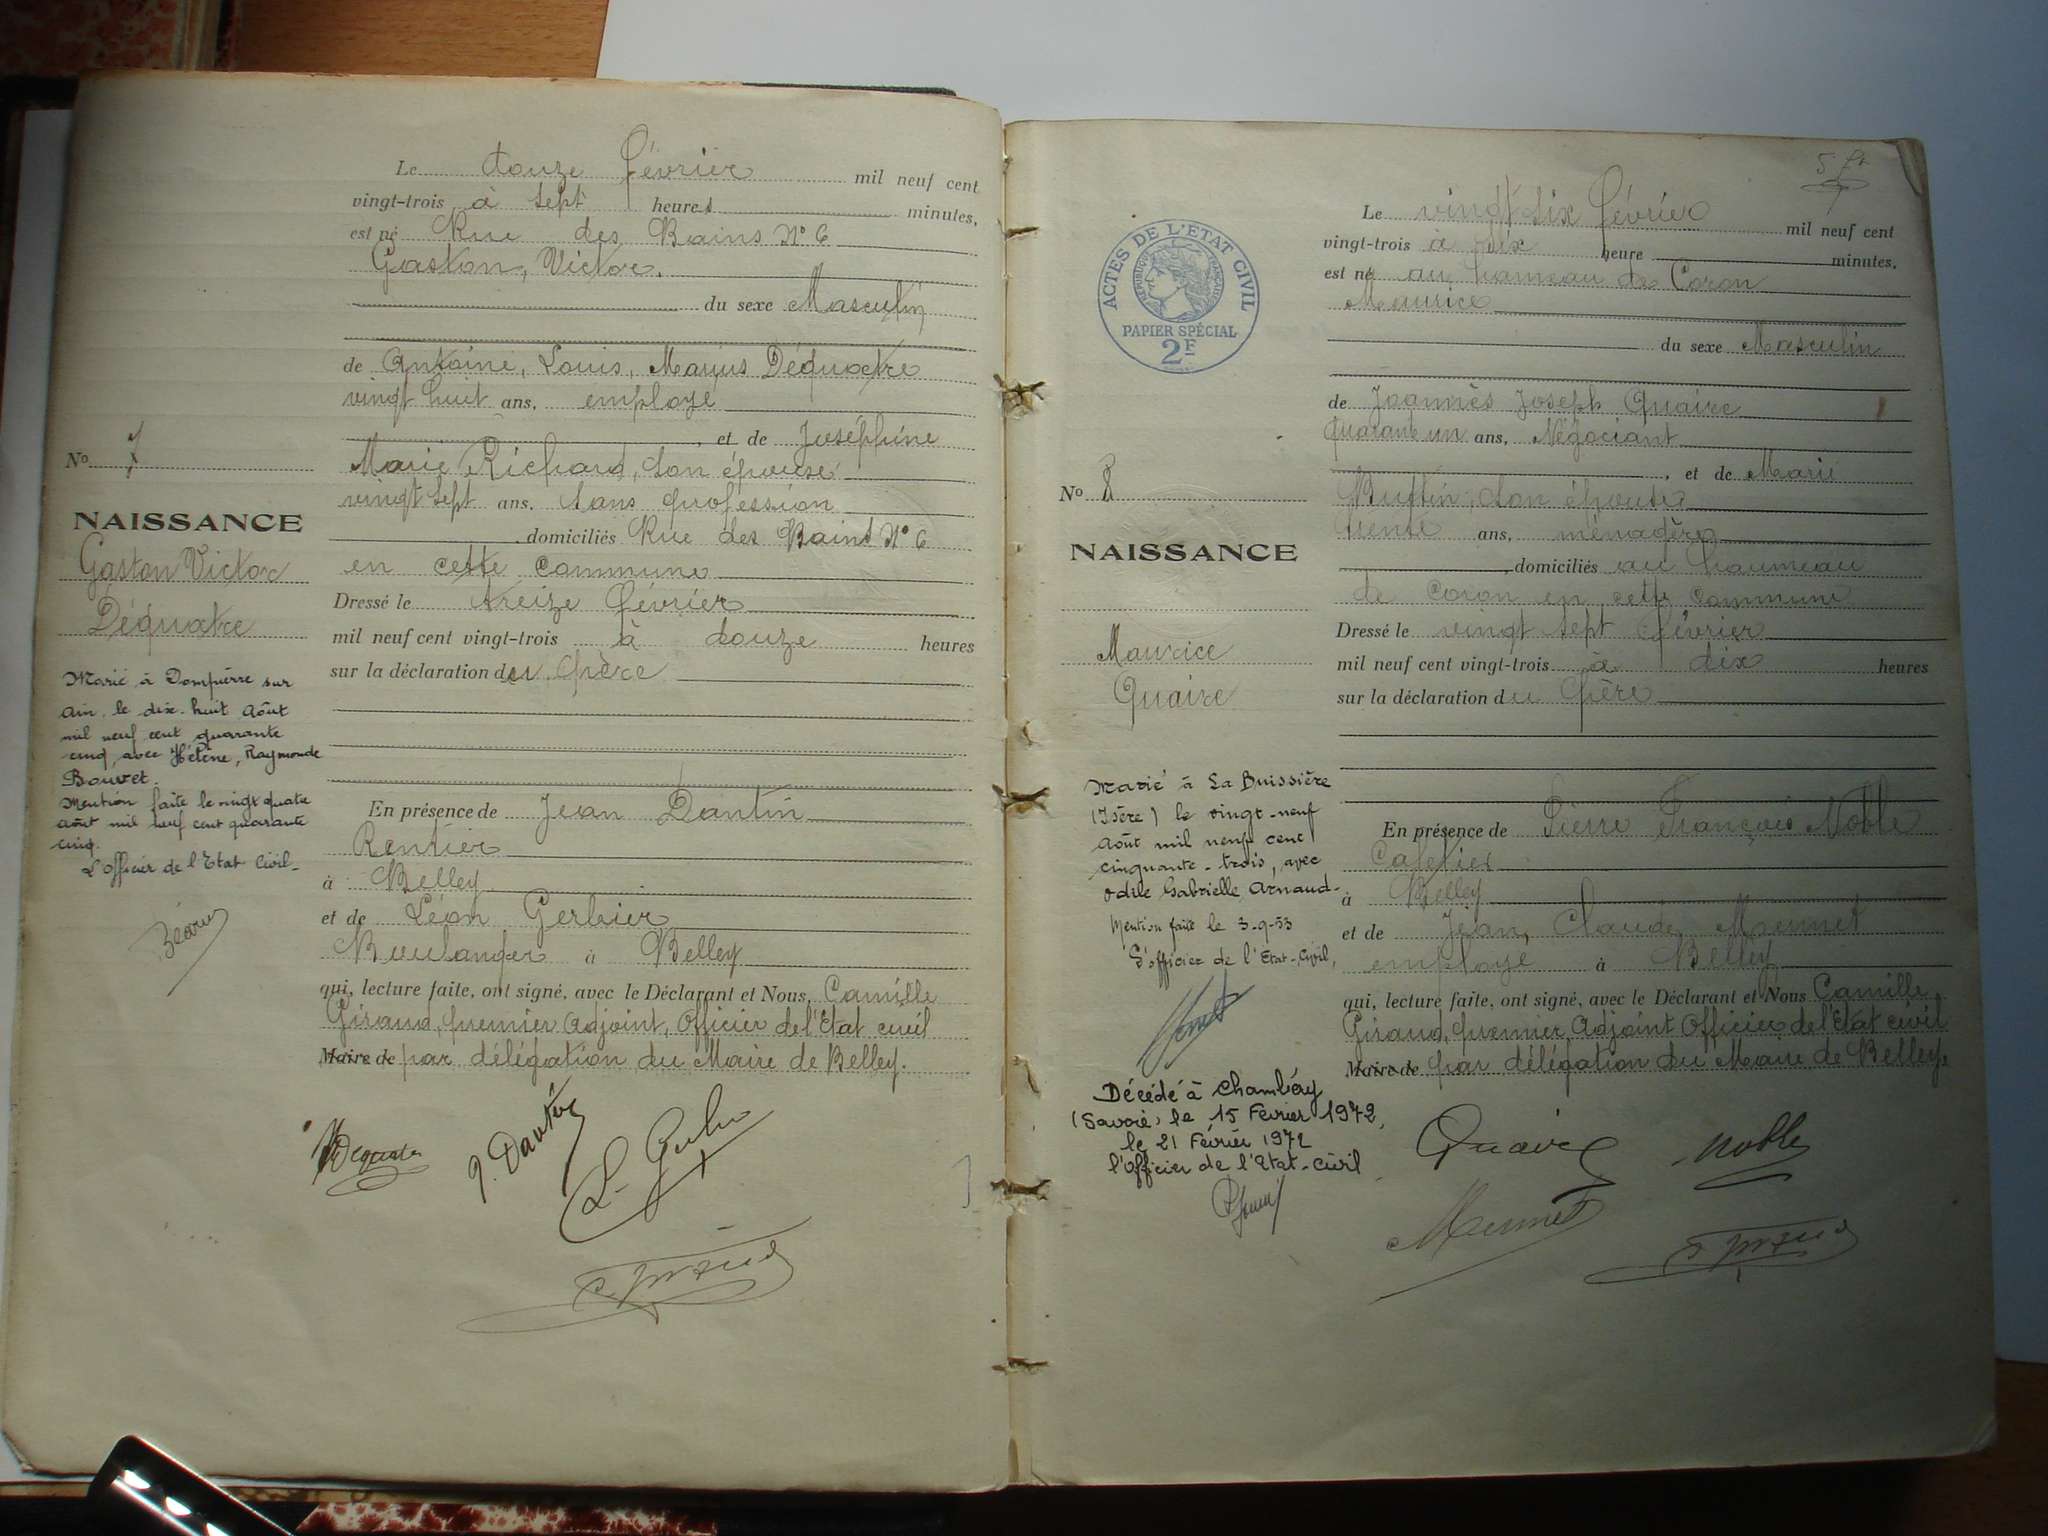 Le douze février mil neuf cent
vingt-trois à sept heures minutes,
est né Rue des Bains N° 6
Gaston, Victor.
du sexe Masculin
de Antoine, Louis, Marius Déquatre
vingt huit ans, employé
, et de Joséphine
Marie Richard, son épouse
vingt sept ans, sans profession
, domiciliés Rue des Bains N° 6
en cette commune
Dressé le treize février
mil neuf cent vingt-trois à douze heures
sur la déclaration du père
En présence de Jean Dantin
Rentier
à Belley
et de Léon Gerbier
Boulanger à Belley
qui, lecture faite, ont signé, avec le Déclarant et Nous, Camille
Giraud, premier Adjoint, Officier de l'Etat civil
Maire de par délégation du Maire de Belley.
No 7
NAISSANCE
Gaston Victor
Déquatre
Marié à Dompierre sur
Ain, le dix-huit Août
mil neuf cent quarante
cinq, avec Hélène, Raymonde
Bouvet.
Mention faite le vingt quatre
août mil neuf cent quarante
cinq.
L'officier de l'Etat Civil-
Déquatre
J. Dantin
L. Gerbier
C. Giraud
5
ACTES DE L'ETAT CIVIL
REPUBLIQUE FRANÇAISE
PAPIER SPÉCIAL
2F
Le vingt six février mil neuf cent
vingt-trois à dix heure minutes,
est né au hameau de Coron
Maurice
du sexe Masculin
de Joannès Joseph Quaire
quarante un ans, Négociant
, et de Marie
son épouse
trente ans, ménagère
, domiciliés au hameau
de Coron en cette commune
Dressé le vingt sept février
mil neuf cent vingt-trois à dix heures
sur la déclaration du père
En présence de Pierre François Noble
Cafetier
à Belley
et de Jean, Claude Meunet
employé à Belley
qui, lecture faite, ont signé, avec le Déclarant et Nous Camille
Giraud, premier Adjoint Officier de l'Etat civil
Maire de par délégation du Maire de Belley.
No 8
NAISSANCE
Maurice
Quaire
Marié à La Buissière
(Isère) le vingt-neuf
Août mil neuf cent
cinquante-trois, avec
Odile Gabrielle Arnaud-
Mention faite le 3-9-53
L'officier de l'Etat-Civil,
Décédé à Chambéry
(Savoie) le 15 Février 1972,
le 21 Février 1972
l'Officier de l'Etat-Civil
Quaire
Noble
Meunet
C. Giraud